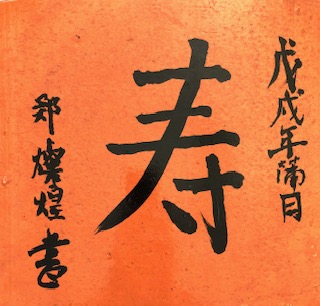 戊戌年蒲月
寿
郑燦煌書